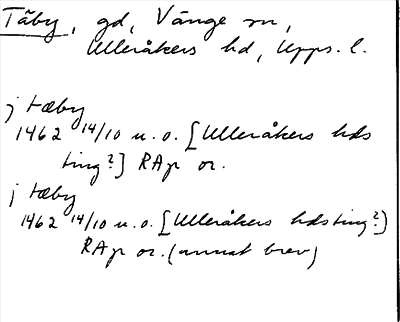 Täby, gd, Vänge sn,
Ulleråkers hd, Upps. l.
j tæby
1462 14/10 u. o. [Ulleråkers hds
ting?] RAp or.
j tæby
1462 14/10 u. o. [Ulleråkers hdsting?]
RAp or. (annat brev)